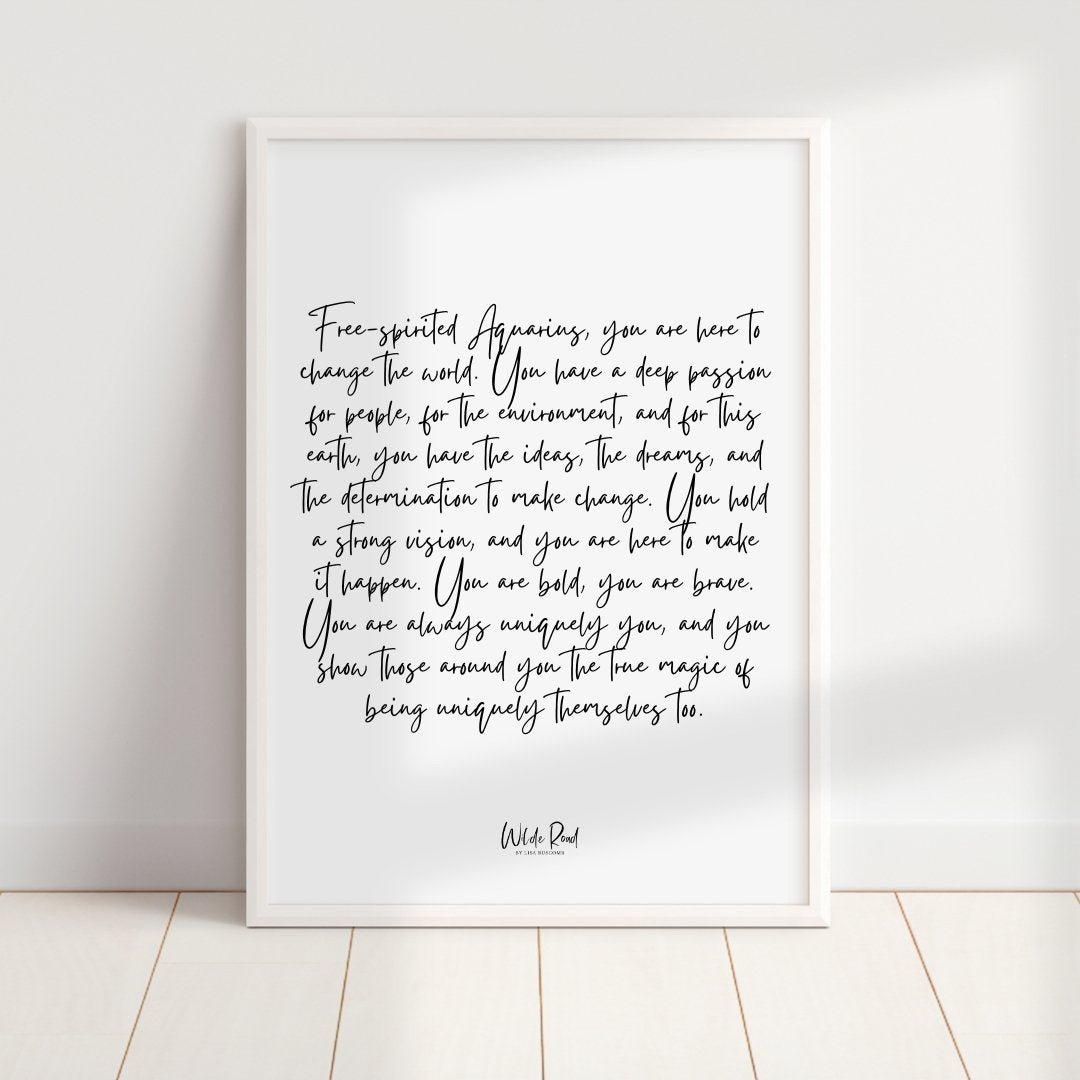 Free-spirited Aquarius, you are here to
change the world. You have a deep passion
for people, for the environment, and for this
earth, you have the ideas, the dreams, and
the determination to make change. You hold
a strong vision, and you are here to make
it happen. You are bold, you are brave.
You are always uniquely you, and you
show those around you the true magic of
being uniquely themselves too.
Wilde Road
BY LISA BUSCOMB